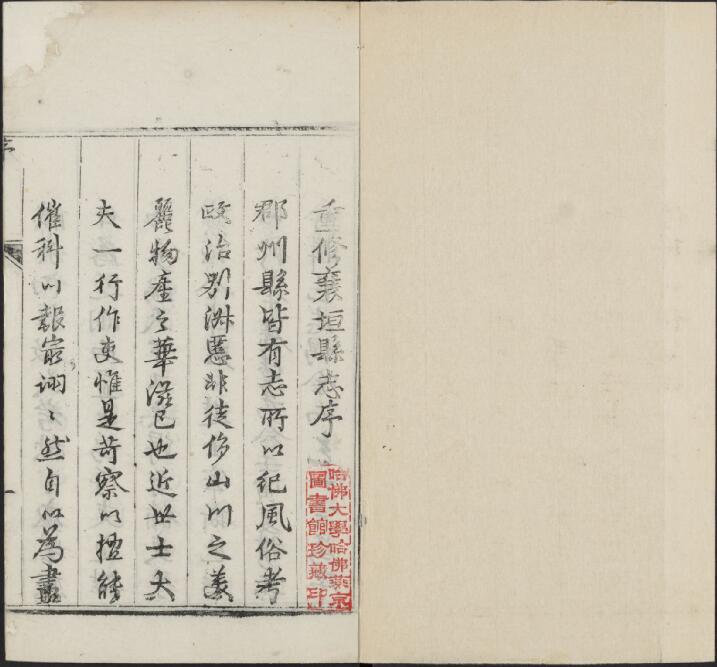 重修襄垣縣志序
郡州縣皆有志所以紀風俗考
政治别淑慝非徒侈山川之美
麗物産之華滋已也近世士大
夫一行作吏惟是苛察以擅能
催科以報最詡〻然自以爲盡
哈佛大學哈佛燕京
圖書館珍藏印